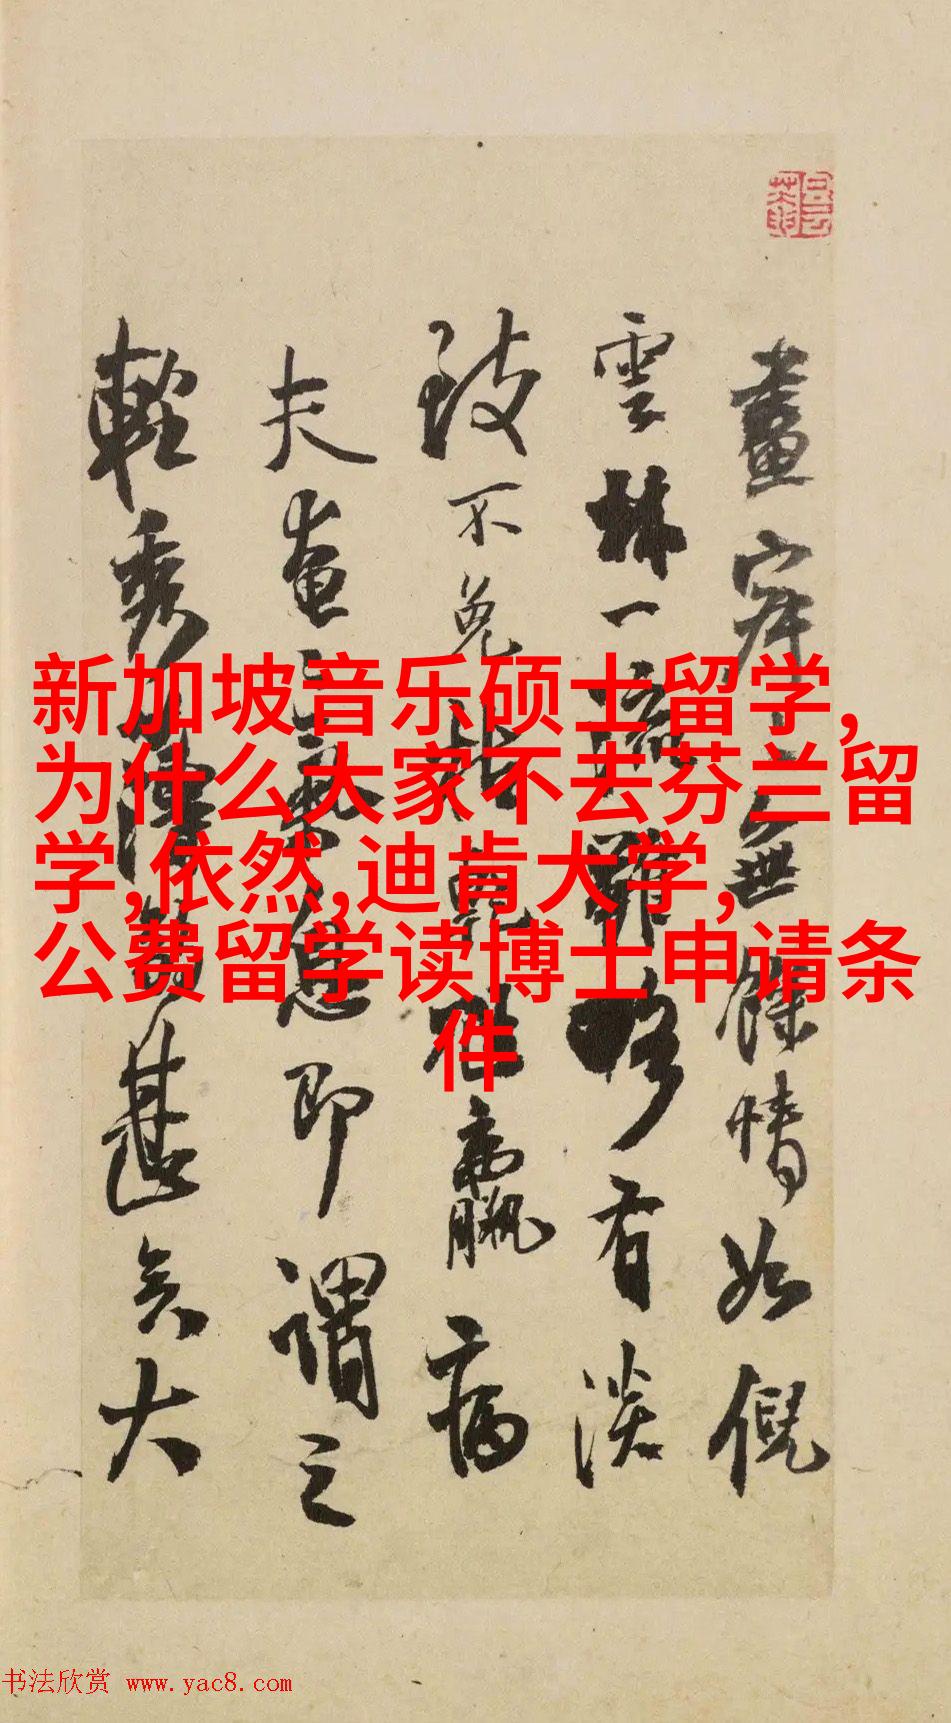 新加坡音乐硕士留学,
为什么大家不去芬兰留
学,依然,迪肯大学,
公费留学读博士申请条
件
畫家 無餘情如倪
雲林一流雖略有淡
致不免枯乾羸病
夫畫 氣息即謂之
輕秀 薄 甚矣大
书法欣赏 www.yac8.com